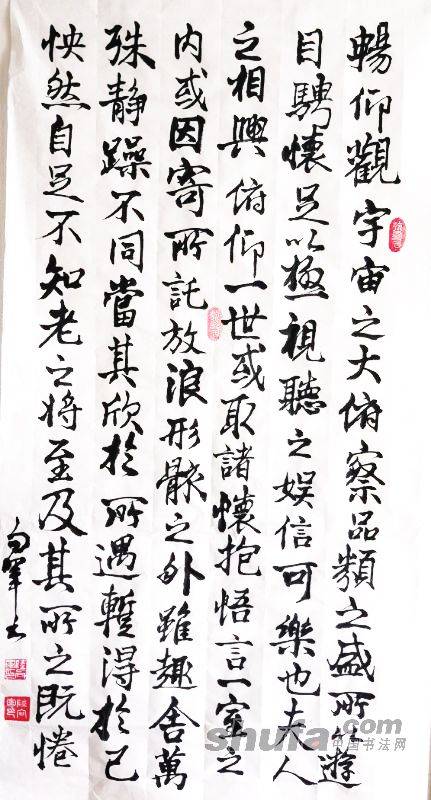 暢仰觀宇宙之大俯察品類之盛所以遊
目騁懷足以極視聽之娛信可樂也夫人
之相與俯仰一世或取諸懷抱悟言一室之
內或因寄所託放浪形骸之外雖趣舍萬
殊静躁不同當其欣於所遇暫得於己
怏然自足不知老之將至及其所之既惓
shufa
中国书法网